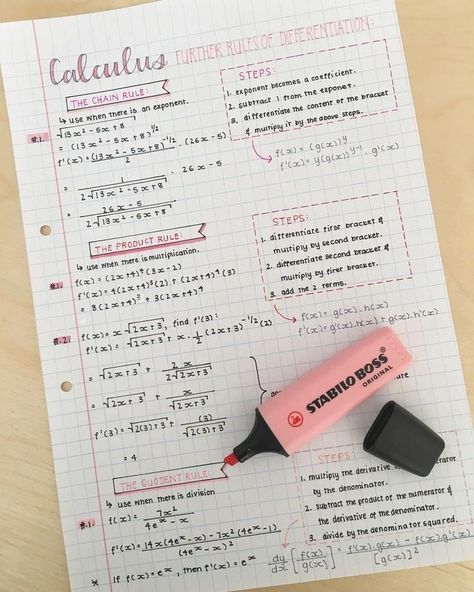 Calculus FURTHER RULES OF DIFFERENTIATION:
THE CHAIN RULE:
↳ use when there is an exponent.
#1. √13x² - 5x + 8
= (13x² - 5x + 8)^1/2
f'(x) = (13x² - 5x + 8)^-1/2 / 2 . (26x - 5)
= 1 / 2√13x² - 5x + 8 . 26x - 5
= 26x - 5 / 2√13x² - 5x + 8
STEPS:
1. exponent becomes a coefficient.
2. subtract 1 from the exponent.
3. differentiate the content of the bracket
& multiply it by the above steps.
f(x) = (g(x))^y
f'(x) = y(g(x))^y-1 . g'(x)
THE PRODUCT RULE:
↳ use when there is multiplication.
#1. f(x) = (2x+4)⁴(3x - 2)
f'(x) = 4(2x+4)³(2) + (2x+4)⁴(3)
= 8(2x+4)³ + 3(2x+4)⁴
STEPS:
1. differentiate first bracket &
multiply by second bracket.
2. differentiate second bracket &
multiply by first bracket.
3. add the 2 terms.
f(x) = g(x).h(x)
f'(x) = g'(x).h(x) + g(x).h'(x)
#2. f(x) = x√2x+3, find f'(3):
f'(x) = √2x+3 + x . 1/2 (2x+3)^-1/2 (2)
= √2x+3 + 2x / 2√2x+3
= √2x+3 + x / √2x+3
f'(3) = √2(3)+3 + (3) / √2(3)+3
= 4
STABILO BOSS
ORIGINAL
THE QUOTIENT RULE:
↳ use when there is division
#1. f(x) = 7x² / 4eˣ - x
f'(x) = 14x(4eˣ - x) - 7x²(4eˣ - 1) / (4eˣ - x)²
* If f(x) = eˣ, then f'(x) = eˣ
STEPS:
1. multiply the derivative
by the denominator.
2. subtract the product of the numerator &
the derivative of the denominator.
3. divide by the denominator squared.
dy/dx [f(x)/g(x)] = f'(x).g(x) - f(x).g'(x) / [g(x)]²